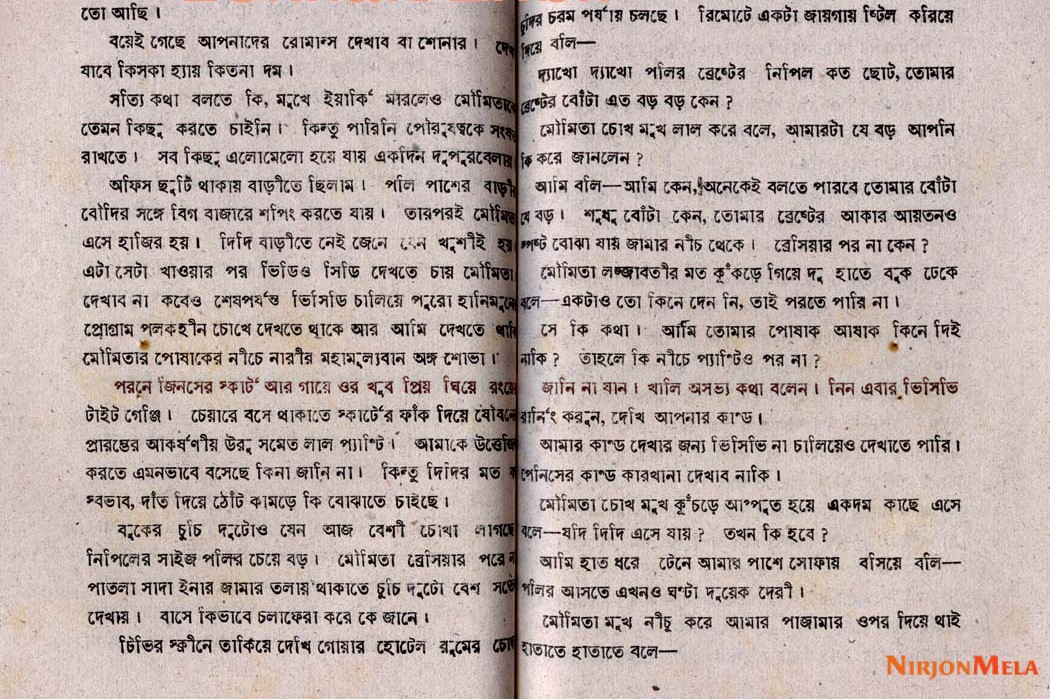 তো আছি।
বয়েই গেছে আপনাদের রোমান্স দেখাব বা শোনার।
যাবে কিসকা হ্যায় কিতনা দম।
সত্যি কথা বলতে কি, মুখে ইয়ার্কি মারলেও মৌমিতাকে
তেমন কিছু করতে চাইনি। কিন্তু পারিনি পৌরুষত্বকে
রাখতে। সব কিছু এলোমেলো হয়ে যায় একদিন দুপুরবেলায়।
অফিস ছুটি থাকায় বাড়ীতে ছিলাম। পলি পাশের বাড়ীর
বৌদির সঙ্গে বিগ বাজারে শপিং করতে যায়। তারপরই মৌমিতা
এসে হাজির হয়। দিদি বাড়ীতে নেই জেনে যেন খুশীই হয়।
এটা সেটা খাওয়ার পর ভিডিও সিডি দেখতে চায় মৌমিতা।
দেখাব না কবেও শেষপর্যন্ত ভিসিডি চালিয়ে পুরো হানিমুনের
প্রোগ্রাম পলকহীন চোখে দেখতে থাকে আর আমি দেখতে থাকি
মৌমিতার পোষাকের নীচে নারীর মহামূল্যবান অঙ্গ শোভা।
পরনে জিনসের স্কার্ট আর গায়ে ওর খুব প্রিয় ঘিয়ে রংয়ের
টাইট গেঞ্জি। চেয়ারে বসে থাকাতে স্কার্টের ফাঁক দিয়ে যৌবনের
প্রারম্ভের আকর্ষণীয় উরু সমেত লাল প্যান্টি। আমাকে উত্তেজিত
করতে এমনভাবে বসেছে কিনা জানি না। কিন্তু দিদির মত
স্বভাব, দাঁত দিয়ে ঠোঁট কামড়ে কি বোঝাতে চাইছে।
বুকের চুচি দুটোও যেন আজ বেশী চোখা লাগছে
নিপিলের সাইজ পলির চেয়ে বড়। মৌমিতা ব্রেসিয়ার পরে না
পাতলা সাদা ইনার জামার তলায় থাকাতে চুচি দুটো বেশ
দেখায়। বাসে কিভাবে চলাফেরা করে কে জানে।
টিভির স্ক্রীনে তাকিয়ে দেখি গোয়ার হোটেল রুমের
চরম পর্যায় চলছে। রিমোটে একটা জায়গায় ষ্টিল করিয়ে
দিয়ে বলি—
দ্যাখো দ্যাখো পলির ব্রেষ্টের নিপিল কত ছোট, তোমার
ব্রেষ্টের বোঁটা এত বড় বড় কেন?
মৌমিতা চোখ মুখ লাল করে বলে, আমারটা যে বড় আপনি
কি করে জানলেন?
আমি বলি—আমি কেন, অনেকেই বলতে পারবে তোমার বোঁটা
যে বড়। শুধু বোঁটা কেন, তোমার ব্রেষ্টের আকার আয়তনও
স্পষ্ট বোঝা যায় জামার নীচ থেকে। ব্রেসিয়ার পর না কেন?
মৌমিতা লজ্জাবতীর মত কুঁকড়ে গিয়ে দু হাতে বুক ঢেকে
বলে—একটাও তো কিনে দেন নি, তাই পরতে পারি না।
সে কি কথা। আমি তোমার পোষাক আষাক কিনে দিই
নাকি? তাহলে কি নীচে প্যান্টিও পর না?
জানি না যান। খালি অসভ্য কথা বলেন। নিন এবার ভিসিভি
রানিং করুন, দেখি আপনার কাণ্ড।
আমার কাণ্ড দেখার জন্য ভিসিভি না চালিয়েও দেখাতে পারি।
পেনিসের কাণ্ড কারখানা দেখাব নাকি।
মৌমিতা চোখ মুখ কুঁচড়ে আপ্লুত হয়ে একদম কাছে এসে
বলে—যদি দিদি এসে যায়? তখন কি হবে?
আমি হাত ধরে টেনে আমার পাশে সোফায় বসিয়ে বলি—
পলির আসতে এখনও ঘণ্টা দুয়েক দেরী।
মৌমিতা মুখ নীচু করে আমার পাজামার ওপর দিয়ে থাই
হাতাতে হাতাতে বলে—
NIRJONMELA